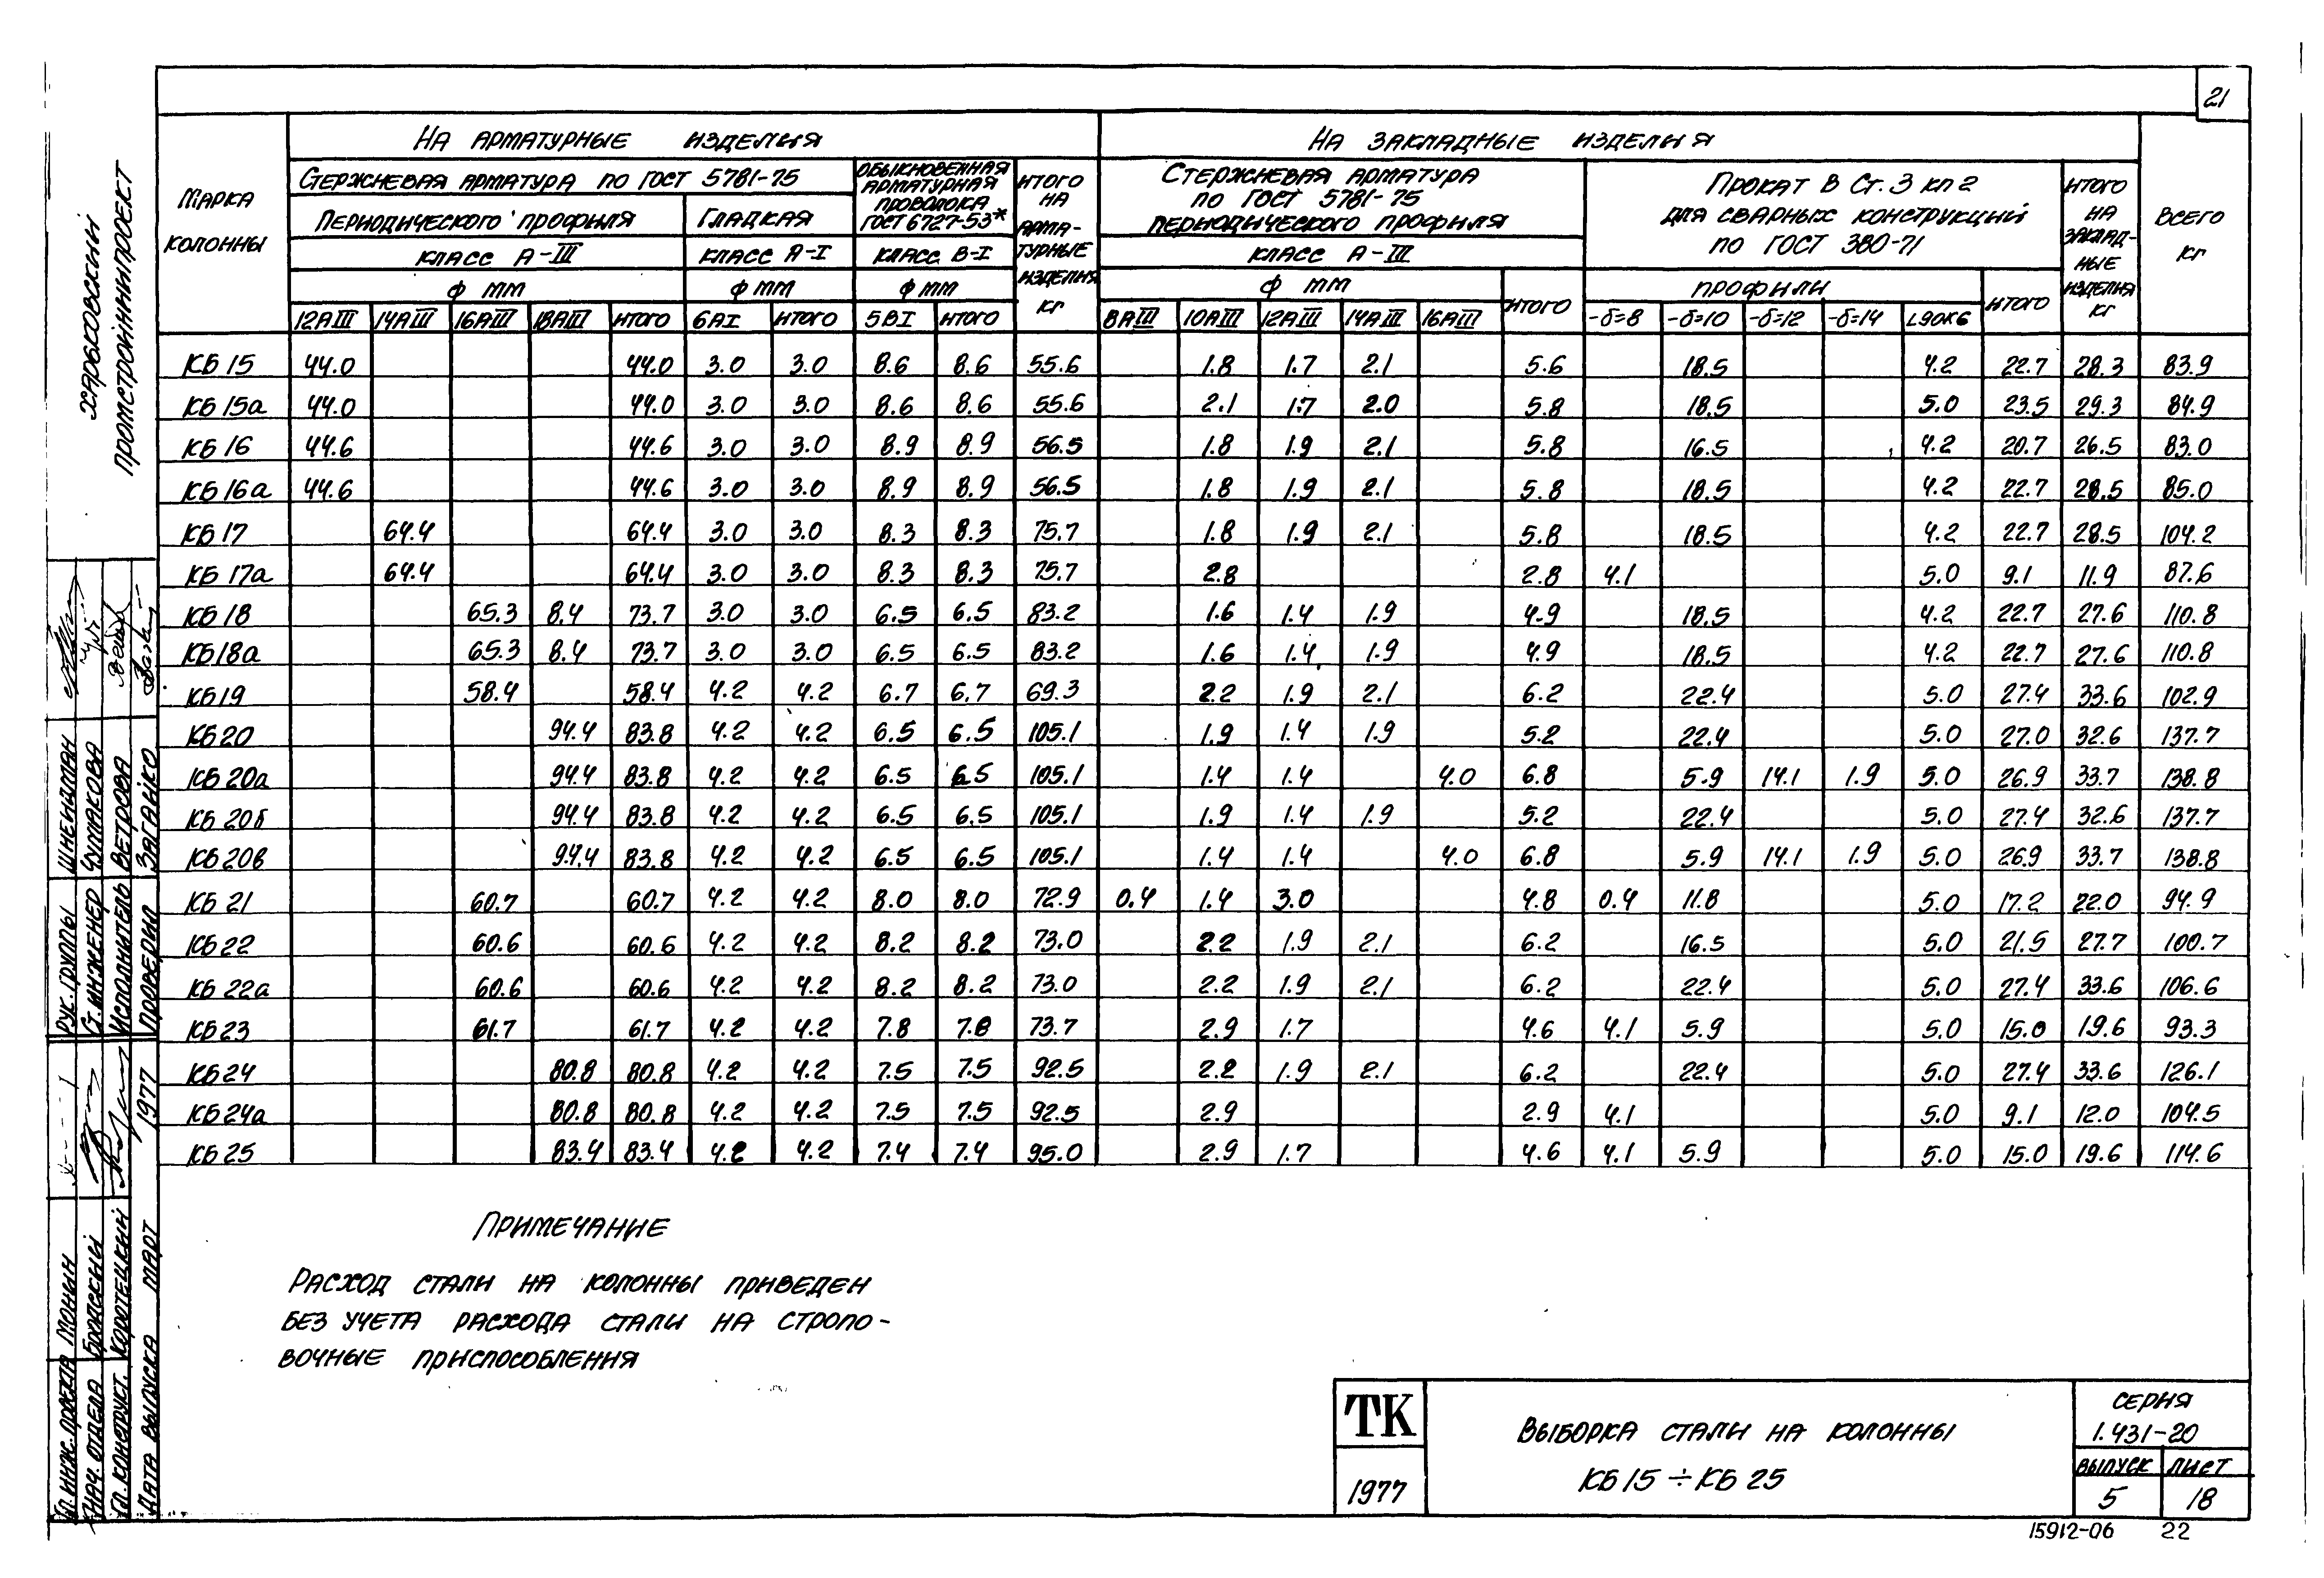 21
МАРКА КОЛОННЫ
НА АРМАТУРНЫЕ ИЗДЕЛИЯ
НА ЗАКЛАДНЫЕ ИЗДЕЛИЯ
ВСЕГО КГ
СТЕРЖНЕВАЯ АРМАТУРА ПО ГОСТ 5781-75
ОБЫКНОВЕННАЯ АРМАТУРНАЯ ПРОВОЛОКА ГОСТ 6727-53*
ИТОГО НА АРМА-ТУРНЫЕ ИЗДЕЛИЯ КГ
СТЕРЖНЕВАЯ АРМАТУРА ПО ГОСТ 5781-75 ПЕРИОДИЧЕСКОГО ПРОФИЛЯ
ПРОКАТ В СТ.3 КП 2 ДЛЯ СВАРНЫХ КОНСТРУКЦИЙ ПО ГОСТ 380-71
ИТОГО НА ЗАКЛАД-НЫЕ ИЗДЕЛИЯ КГ
ПЕРИОДИЧЕСКОГО ПРОФИЛЯ ГЛАДКАЯ
КЛАСС А-III КЛАСС А-I КЛАСС В-I КЛАСС А-III
Ф ММ Ф ММ Ф ММ Ф ММ ИТОГО ПРОФИЛИ ИТОГО
12АIII 14АIII 16АIII 18АIII ИТОГО 6АI ИТОГО 5ВI ИТОГО 8АIII 10АIII 12АIII 14АIII 16АIII -δ=8 -δ=10 -δ=12 -δ=14 L90К6
КБ 15 44.0 44.0 3.0 3.0 8.6 8.6 55.6 1.8 1.7 2.1 5.6 18.5 4.2 22.7 28.3 83.9
КБ 15а 44.0 44.0 3.0 3.0 8.6 8.6 55.6 2.1 1.7 2.0 5.8 18.5 5.0 23.5 29.3 84.9
КБ 16 44.6 44.6 3.0 3.0 8.9 8.9 56.5 1.8 1.9 2.1 5.8 16.5 4.2 20.7 26.5 83.0
КБ 16а 44.6 44.6 3.0 3.0 8.9 8.9 56.5 1.8 1.9 2.1 5.8 18.5 4.2 22.7 28.5 85.0
КБ 17 64.4 64.4 3.0 3.0 8.3 8.3 75.7 1.8 1.9 2.1 5.8 18.5 4.2 22.7 28.5 104.2
КБ 17а 64.4 64.4 3.0 3.0 8.3 8.3 75.7 2.8 2.8 4.1 5.0 9.1 11.9 87.6
КБ 18 65.3 8.4 73.7 3.0 3.0 6.5 6.5 83.2 1.6 1.4 1.9 4.9 18.5 4.2 22.7 27.6 110.8
КБ18а 65.3 8.4 73.7 3.0 3.0 6.5 6.5 83.2 1.6 1.4 1.9 4.9 18.5 4.2 22.7 27.6 110.8
КБ19 58.4 58.4 4.2 4.2 6.7 6.7 69.3 2.2 1.9 2.1 6.2 22.4 5.0 27.4 33.6 102.9
КБ20 94.4 83.8 4.2 4.2 6.5 6.5 105.1 1.9 1.4 1.9 5.2 22.4 5.0 27.0 32.6 137.7
КБ 20а 94.4 83.8 4.2 4.2 6.5 6.5 105.1 1.4 1.4 4.0 6.8 5.9 14.1 1.9 5.0 26.9 33.7 138.8
КБ 20б 94.4 83.8 4.2 4.2 6.5 6.5 105.1 1.9 1.4 1.9 5.2 22.4 5.0 27.4 32.6 137.7
КБ20в 94.4 83.8 4.2 4.2 6.5 6.5 105.1 1.4 1.4 4.0 6.8 5.9 14.1 1.9 5.0 26.9 33.7 138.8
КБ 21 60.7 60.7 4.2 4.2 8.0 8.0 72.9 0.4 1.4 3.0 4.8 0.4 11.8 5.0 17.2 22.0 94.9
КБ22 60.6 60.6 4.2 4.2 8.2 8.2 73.0 2.2 1.9 2.1 6.2 16.5 5.0 21.5 27.7 100.7
КБ 22а 60.6 60.6 4.2 4.2 8.2 8.2 73.0 2.2 1.9 2.1 6.2 22.4 5.0 27.4 33.6 106.6
КБ23 61.7 61.7 4.2 4.2 7.8 7.8 73.7 2.9 1.7 4.6 4.1 5.9 5.0 15.0 19.6 93.3
КБ24 80.8 80.8 4.2 4.2 7.5 7.5 92.5 2.2 1.9 2.1 6.2 22.4 5.0 27.4 33.6 126.1
КБ24а 80.8 80.8 4.2 4.2 7.5 7.5 92.5 2.9 2.9 4.1 5.0 9.1 12.0 104.5
КБ25 83.4 83.4 4.2 4.2 7.4 7.4 95.0 2.9 1.7 4.6 4.1 5.9 5.0 15.0 19.6 114.6
ПРИМЕЧАНИЕ
РАСХОД СТАЛИ НА КОЛОННЫ ПРИВЕДЕН
БЕЗ УЧЕТА РАСХОДА СТАЛИ НА СТРОПО-
ВОЧНЫЕ ПРИСПОСОБЛЕНИЯ
ТК
1977
ВЫБОРКА СТАЛИ НА КОЛОННЫ
КБ 15 ÷ КБ 25
СЕРИЯ
1.431-20
ВЫПУСК ЛИСТ
5 18
15912-06 22
ХАРЬКОВСКИЙ
ПРОМСТРОЙНИИПРОЕКТ
РУК. ГРУППЫ ШНЕЙДМАН
СТ. ИНЖЕНЕР ЧУМАКОВА
ИСПОЛНИТЕЛЬ ВЕТРОВА
ПРОВЕРИЛ ЗАГАЙКО
ГЛ. ИНЖ. ПРОЕКТА МОНИН
НАЧ. ОТДЕЛА БРОДСКИЙ
ГЛ. КОНСТРУКТ. КОРОТЕЦКИЙ
ДАТА ВЫПУСКА МАРТ 1977